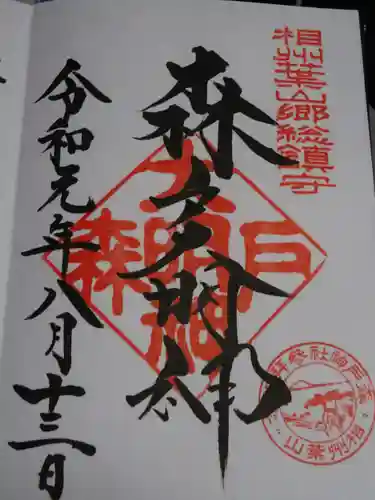 相州葉山郷総鎮守
森戸大明神
森戸大明神
令和元年八月十三日
相州葉山